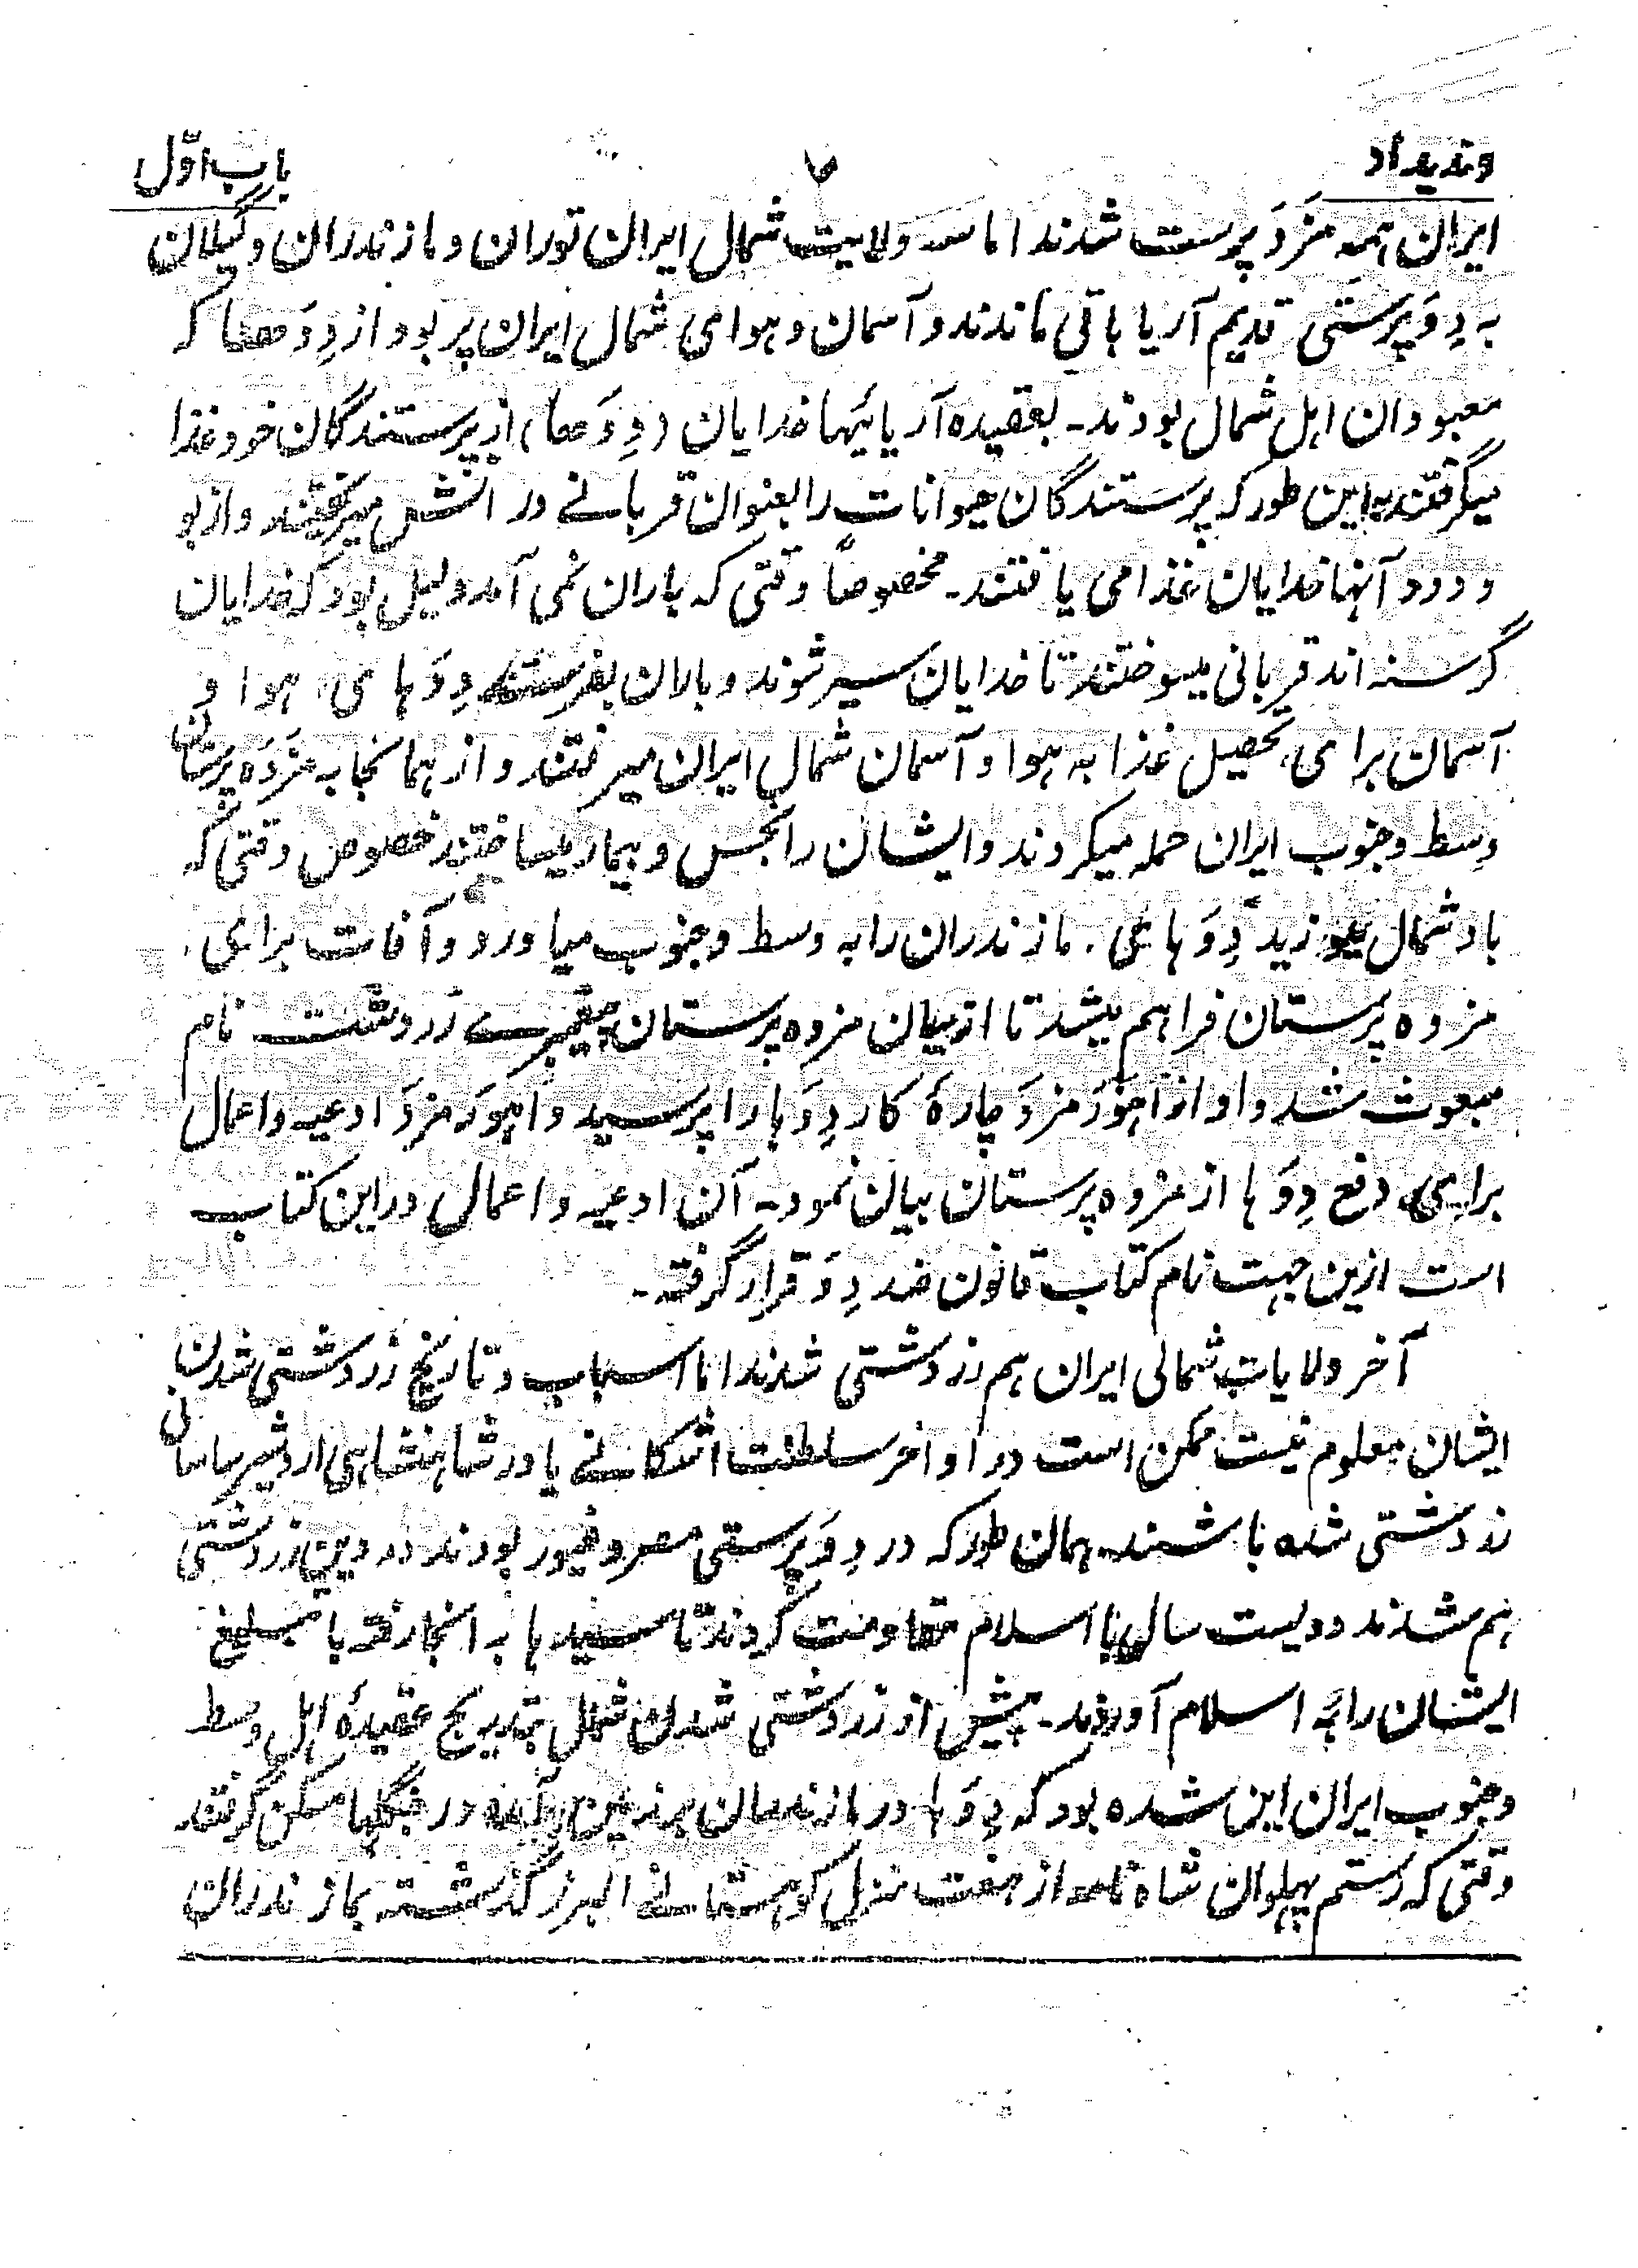 وندیداد
۷
باب اوّل
ایران همه مَزدَ پرست شدند اما سه ولایت شمال ایران توران و مازندران و گیلان
به دِوَ پرستی قدیم آریا باقی ماندند و آسمان و هوای شمال ایران پر بود از دِوَها که
معبودان اهل شمال بودند۔ بعقیده آریائیها خدایان (دِوَها) از پرستندگان خود غذا
میگرفتند به این طور که پرستندگان حیوانات را بعنوان قربانی در آتش میریختند و از بو
و دود آنها خدایان غذا می یافتند۔ مخصوصاً وقتی که باران نمی آمد دلیل بود که خدایان
گرسنه اند قربانی میسوختند تا خدایان سیر شوند و باران بفرستند دِوَهای هوا و
آسمان برای تحصیل غذا به هوا و آسمان شمال ایران میرفتند و از همانجا به مَزدَه پرستان
وسط و جنوب ایران حمله میکردند و ایشان را نجس و بیمار میساختند خصوص وقتی که
باد شمال میوزید دِوَهای مازندران را به وسط و جنوب میاورد و آفات برای
مزده پرستان فراهم میشد تا از میان مزده پرستان پیغمبری زردشت نام
مبعوث شد و او از اَهوَرَمزدَ چارهٔ کار دِوَها را پرسید و اهورَمزدَ ادعیه و اعمال
برای دفع دِوَها از مزده پرستان بیان نمود۔ آن ادعیه و اعمال در این کتاب
است ازین جهت نام کتاب قانون ضد دِوَ قرار گرفته۔
آخر ولایات شمالی ایران هم زردشتی شدند اما اسباب و تاریخ زردشتی شدن
ایشان معلوم نیست ممکن است در اواخر سلطنت اشکانی یا در شاهنشاهی اردشیر ساسانی
زردشتی شده باشند همان طور که در دِوَ پرستی مصر و غیور بودند در دین زردشتی
هم شدند دویست سال با اسلام مقاومت کردند تا سیدها به آنجا رفته با تبلیغ
ایشان را به اسلام آوردند۔ پیش از زردشتی شدن شمال بتدریج عقیدهٔ اهل وسط
و جنوب ایران این شده بود که دِوَها در مازندران بر زمین آمده در جنگلها مسکن گرفتند
وقتی که رستم پهلوان شاه نامه از هفت منزل کوهستانی البرز گذشته بمازندران